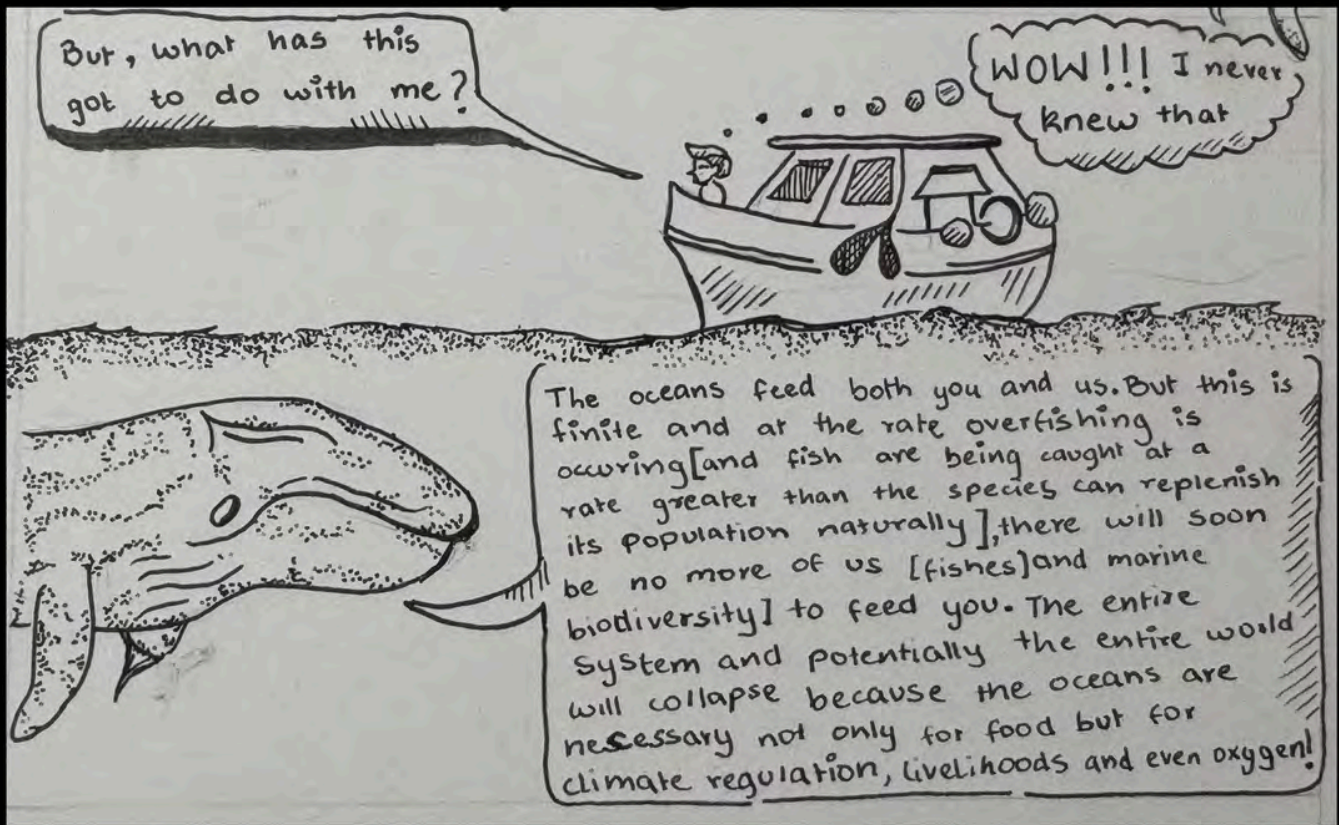 But, what has this
got to do with me?
WOW!!! I never
knew that
The oceans feed both you and us. But this is
finite and at the rate overfishing is
occuring[and fish are being caught at a
rate greater than the species can replenish
its population naturally], there will soon
be no more of us [fishes]and marine
biodiversity] to feed you. The entire
system and potentially the entire world
will collapse because the oceans are
necessary not only for food but for
climate regulation, livelihoods and even oxygen!